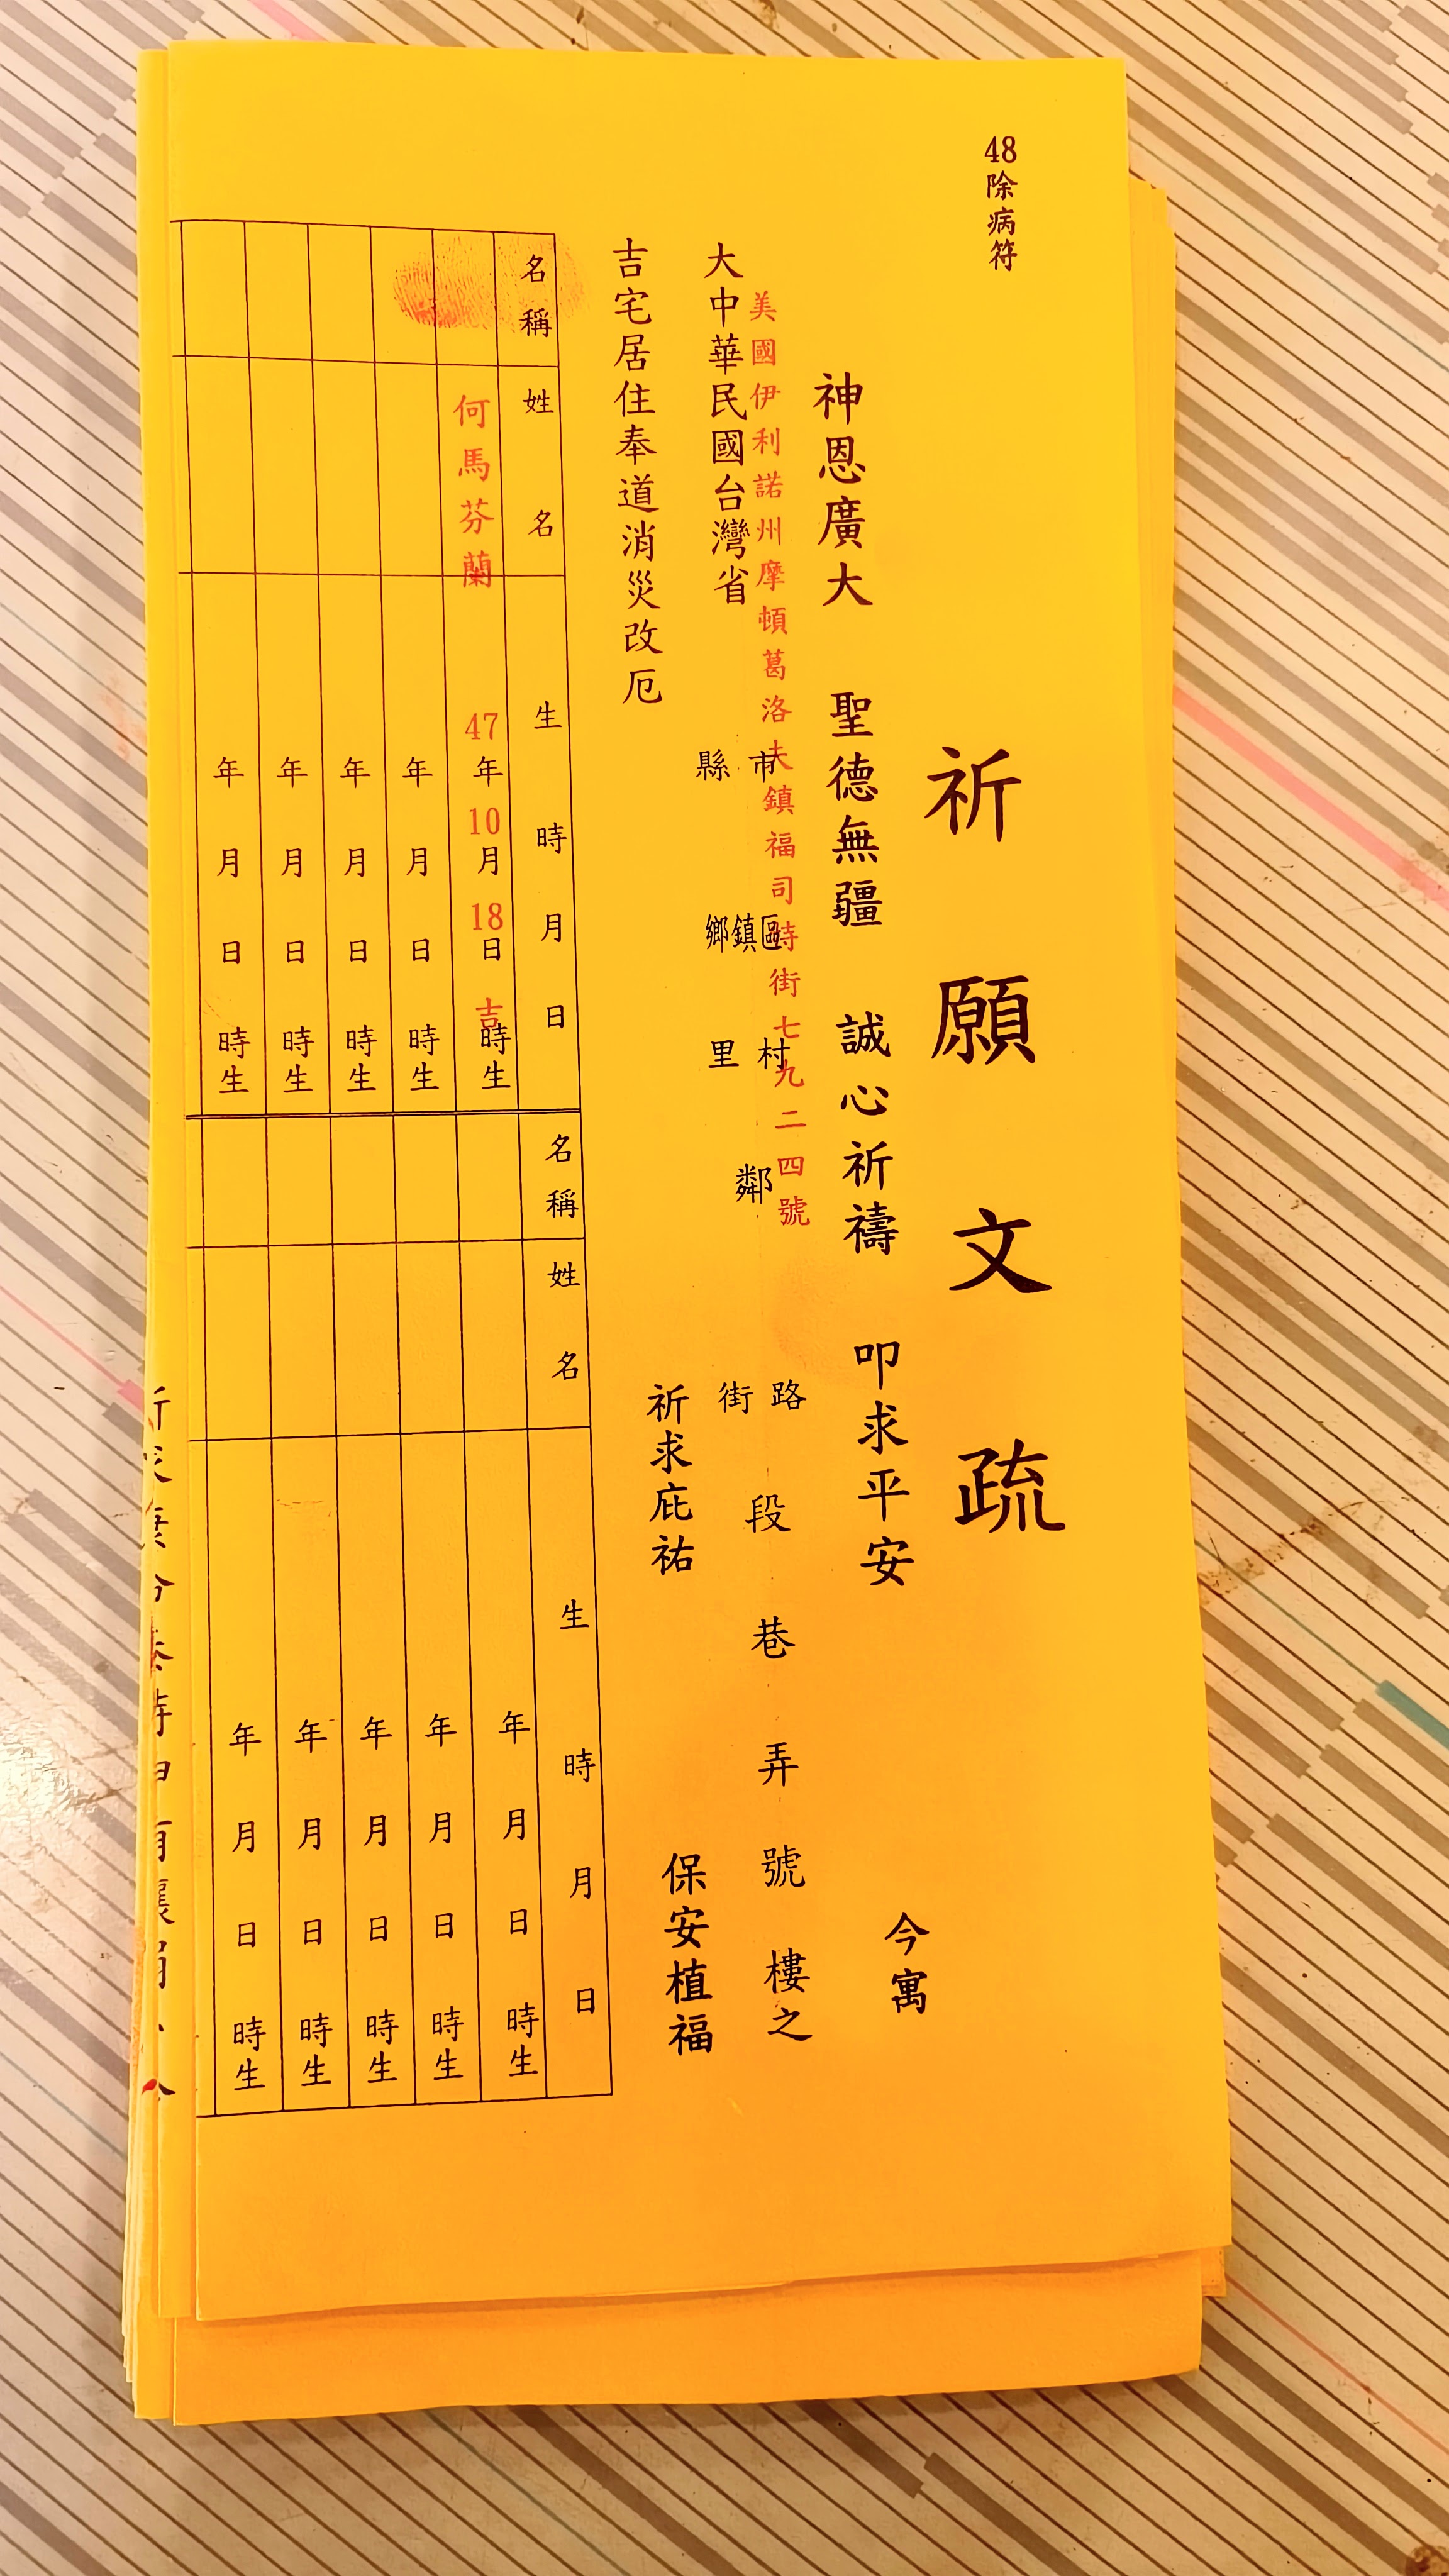 48除病符
祈願文疏
神恩廣大 聖德無疆 誠心祈禱 叩求平安 今寓
美國伊利諾州摩頓葛洛夫鎮福司特街七九二四號
大中華民國台灣省 縣市 鄉鎮區 里村 鄰 街路 段 巷 弄 號 樓之
吉宅居住奉道消災改厄 祈求庇祐 保安植福
名稱 姓名 生時月日 名稱 姓名 生時月日
何馬芬蘭 47年10月18日吉時生 年月日時生
年月日時生 年月日時生
年月日時生 年月日時生
年月日時生 年月日時生
年月日時生 年月日時生